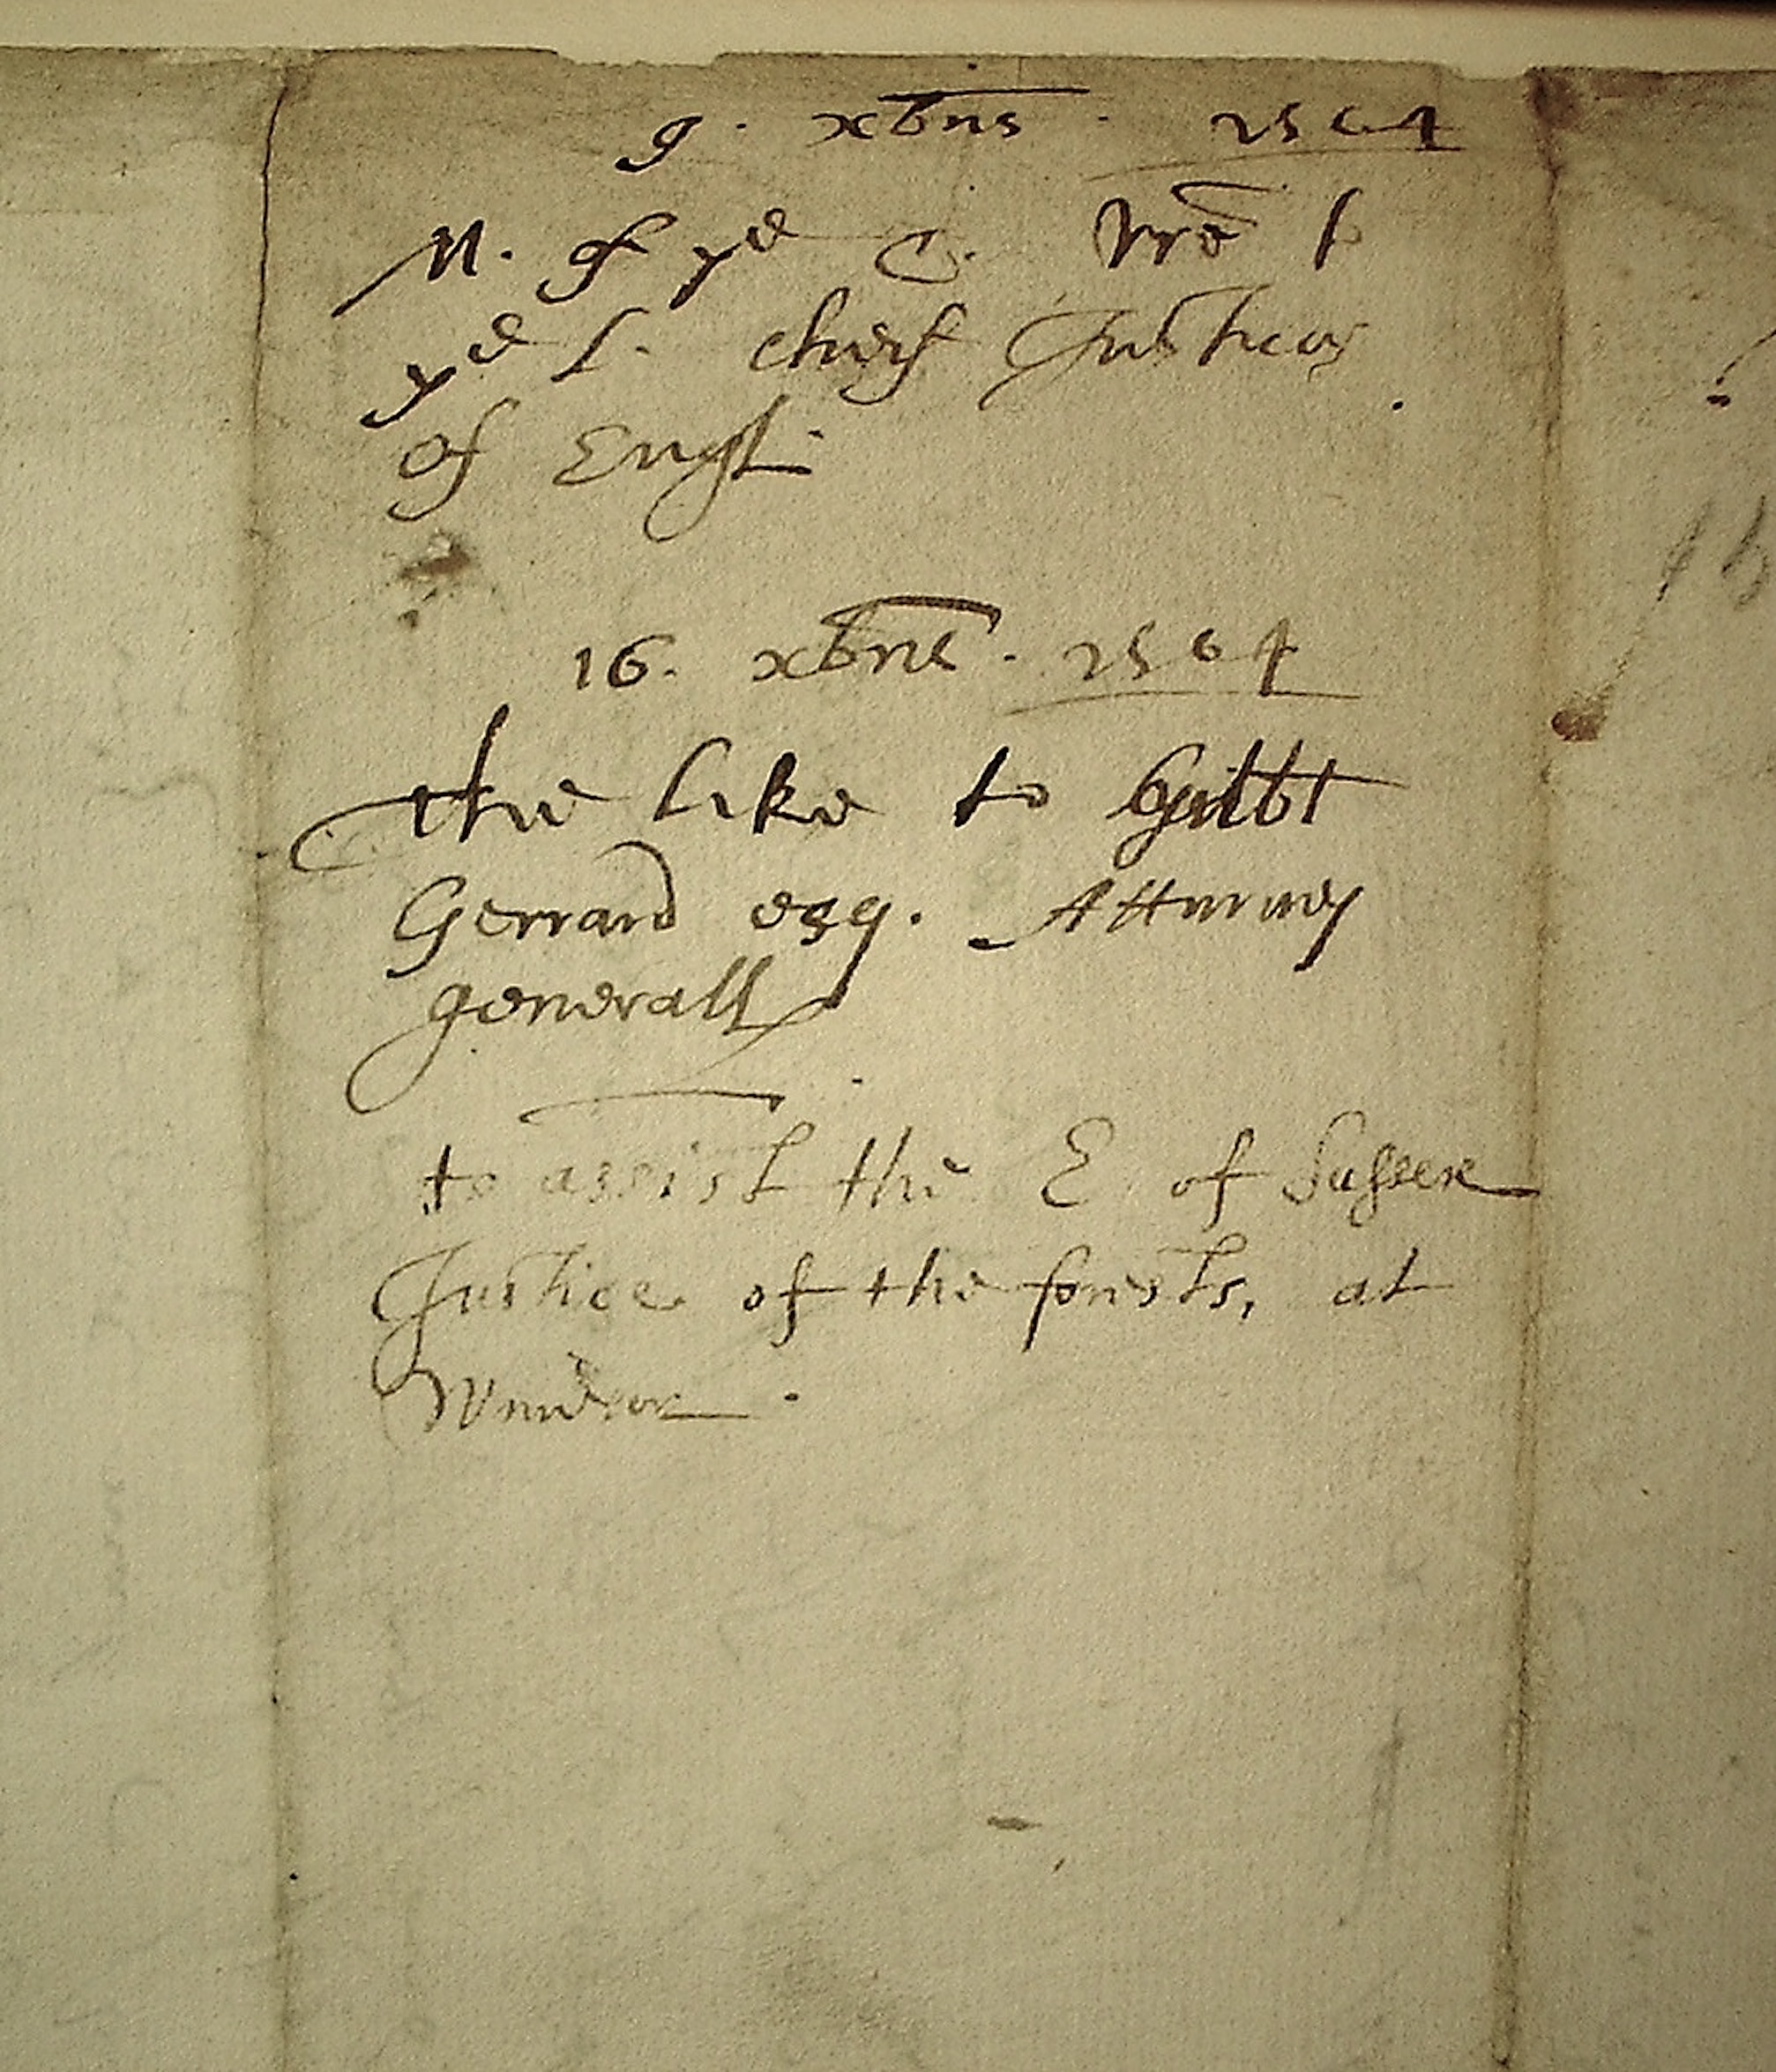 9. xbris. 1564
M. of ye C. wrē to
ye L. chief Justice
of Engl.
16. xbris. 1564
the like to Gilbt
Gerrard esq. Attorney
generall
to assist the E of Sussex
Justice of the forests, at
Windsor.